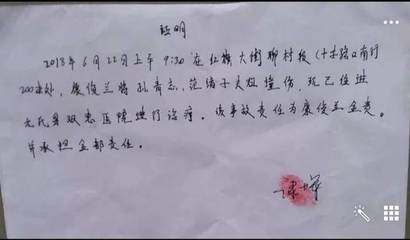 证明
2018年6月22日上午9:30在红旗大街聊村段(十字路口南行
200米处,康俊兰将孔青志、范绪子夫妇撞伤,现已住进
元氏县双惠医院进行治疗。该事故责任为康俊兰全责。
并承担全部责任。